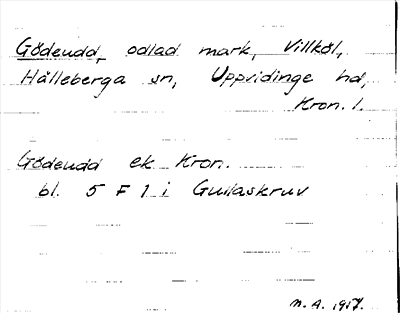 Gödeudd, odlad mark, Villköl,
Hälleberga sn, Uppvidinge hd,
Kron. l.
Gödeudd ek Kron.
bl. 5 F 1 i Gullaskruv
M.A. 1957.